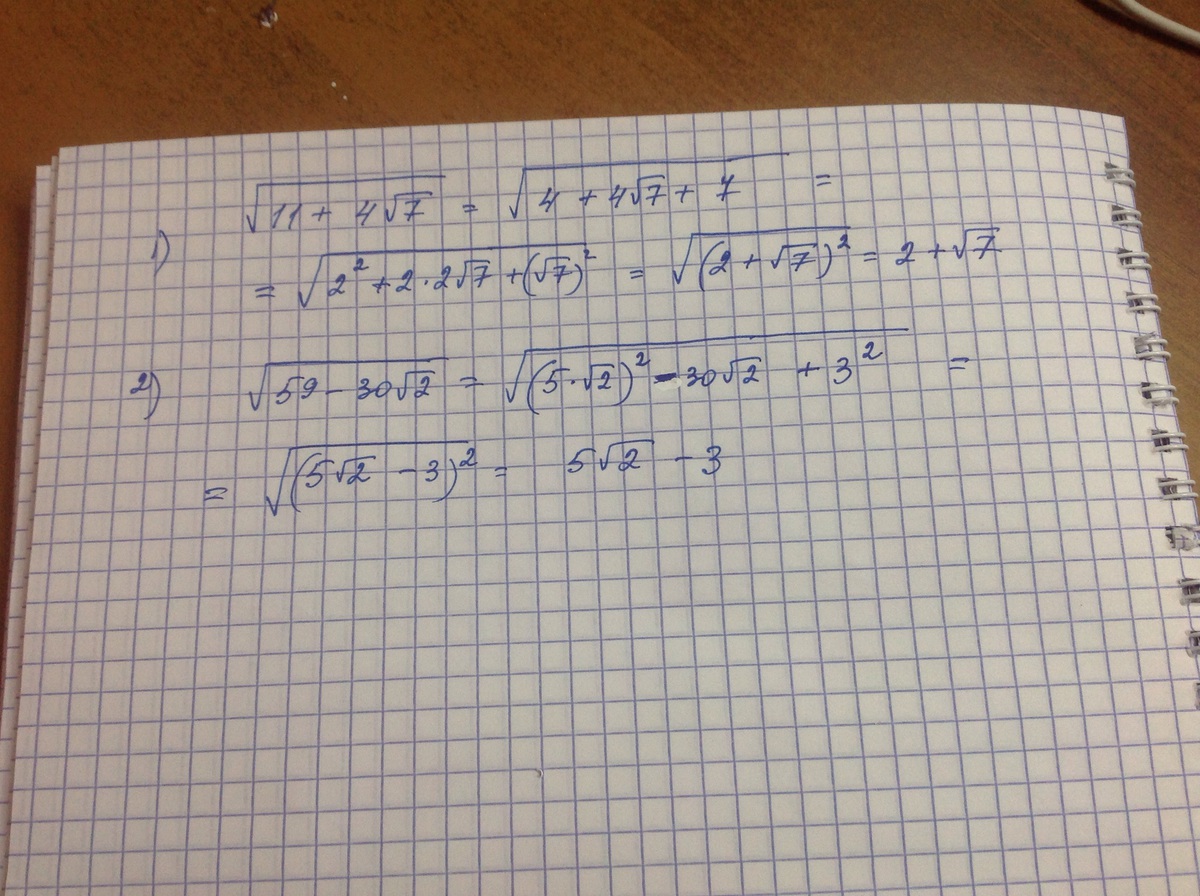 1) √(11 + 4√7) = √(4 + 4√7 + 7) =
= √(2² + 2·2√7 + (√7)²) = √((2 + √7)²) = 2 + √7
2) √(59 - 30√2) = √((5·√2)² - 30√2 + 3²) =
= √((5√2 - 3)²) = 5√2 - 3